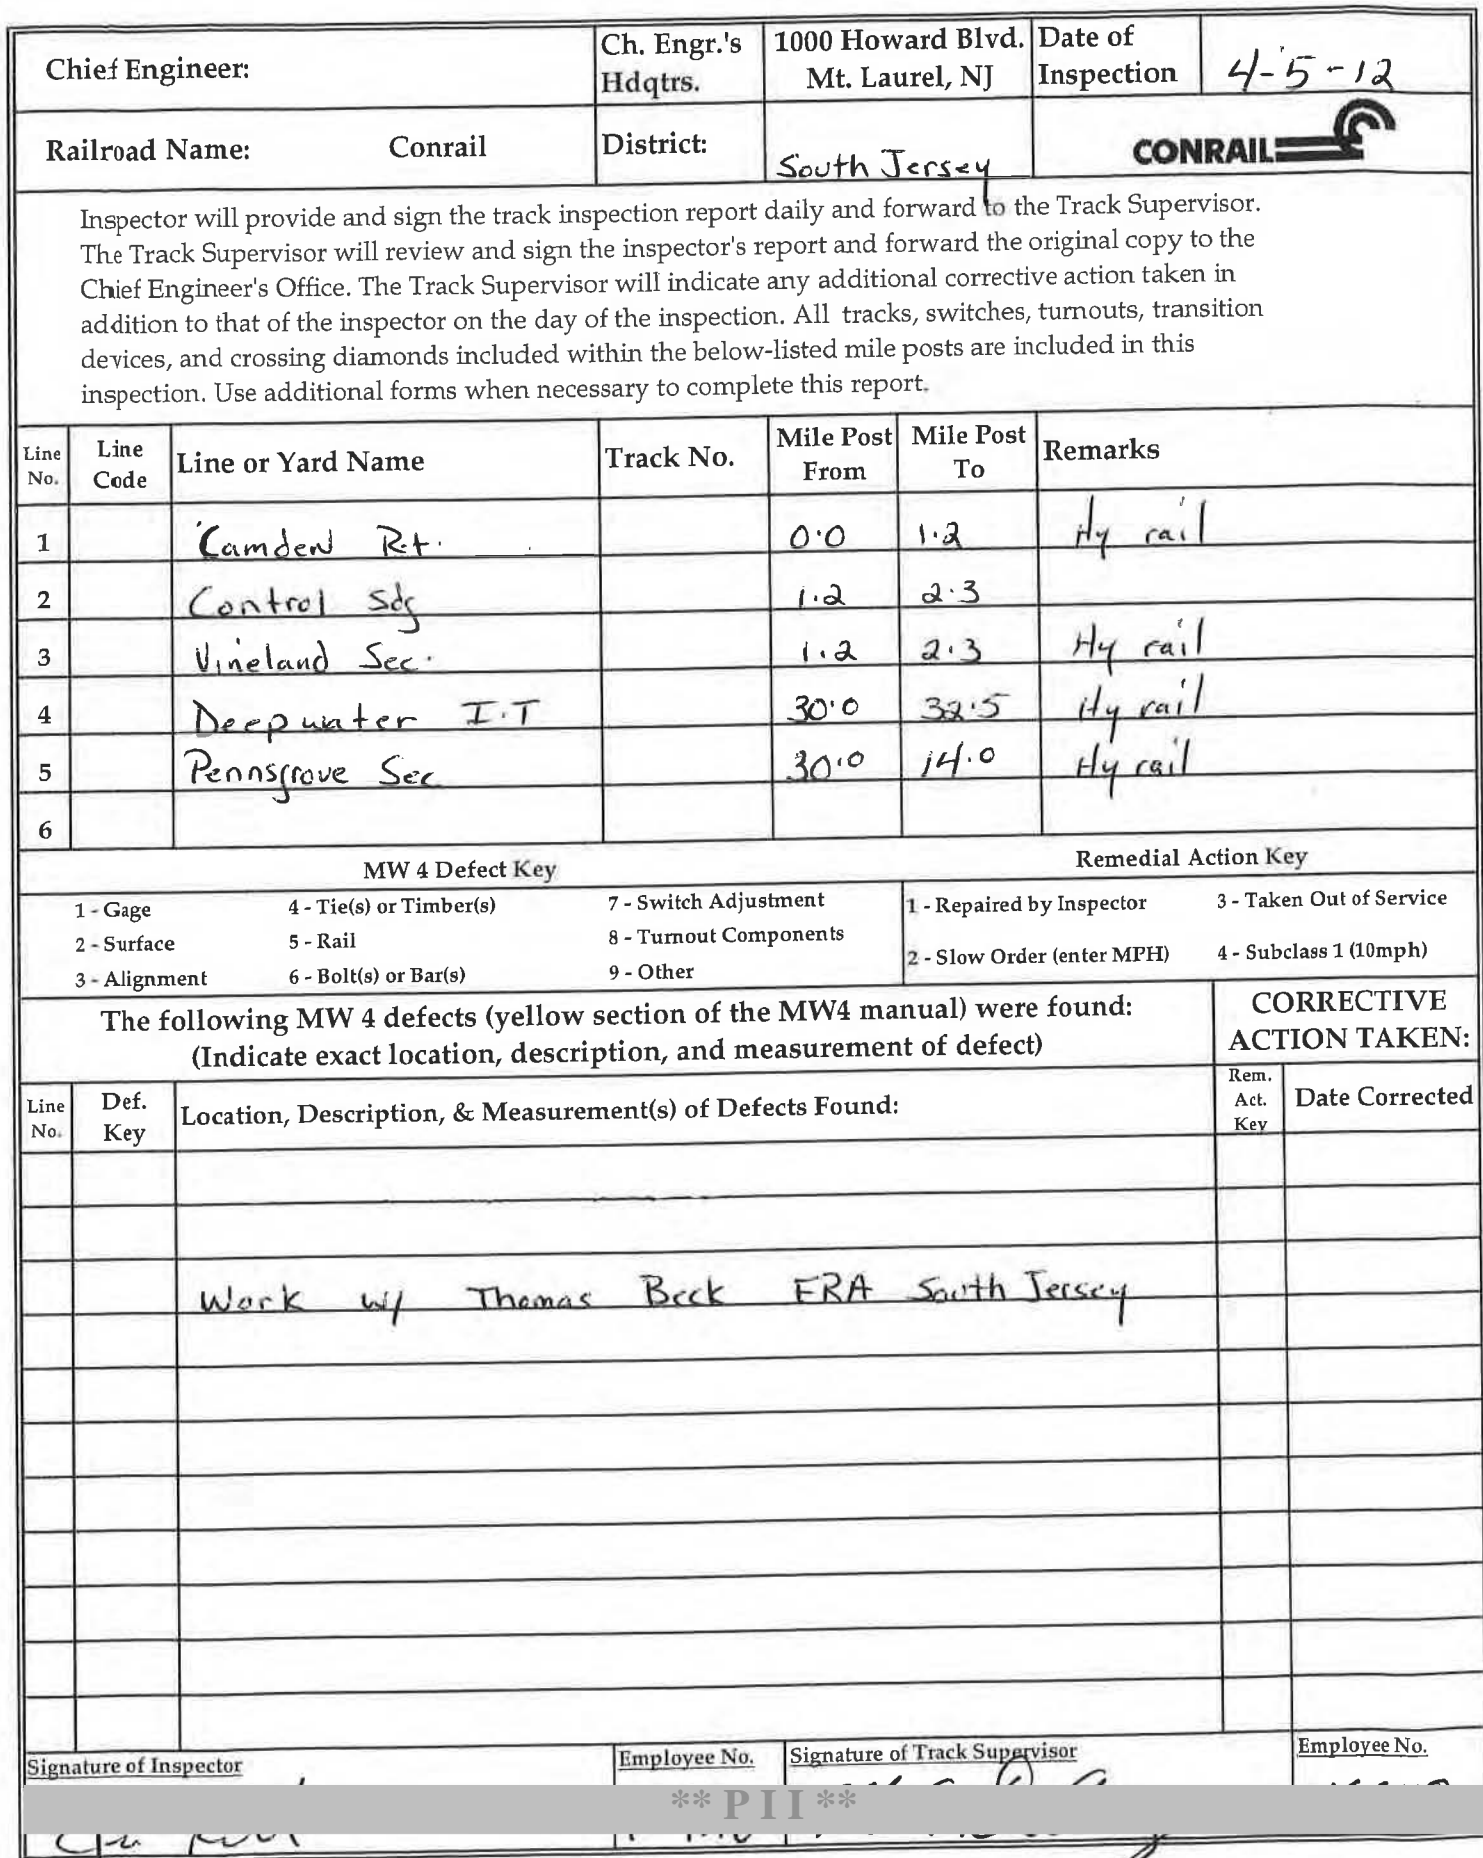 Chief Engineer: Ch. Engr.'s Hdqtrs. 1000 Howard Blvd. Mt. Laurel, NJ Date of Inspection 4-5-12
Railroad Name: Conrail District: South Jersey CONRAIL
Inspector will provide and sign the track inspection report daily and forward to the Track Supervisor.
The Track Supervisor will review and sign the inspector's report and forward the original copy to the
Chief Engineer's Office. The Track Supervisor will indicate any additional corrective action taken in
addition to that of the inspector on the day of the inspection. All tracks, switches, turnouts, transition
devices, and crossing diamonds included within the below-listed mile posts are included in this
inspection. Use additional forms when necessary to complete this report.
Line No. Line Code Line or Yard Name Track No. Mile Post From Mile Post To Remarks
1 Camden Rt. 0.0 1.2 Hy rail
2 Control Sdg 1.2 2.3
3 Vineland Sec. 1.2 2.3 Hy rail
4 Deepwater I.T 30.0 32.5 Hy rail
5 Pennsgrove Sec 30.0 14.0 Hy rail
6
MW 4 Defect Key Remedial Action Key
1 - Gage 4 - Tie(s) or Timber(s) 7 - Switch Adjustment 1 - Repaired by Inspector 3 - Taken Out of Service
2 - Surface 5 - Rail 8 - Turnout Components
2 - Slow Order (enter MPH) 4 - Subclass 1 (10mph)
3 - Alignment 6 - Bolt(s) or Bar(s) 9 - Other
The following MW 4 defects (yellow section of the MW4 manual) were found: CORRECTIVE
(Indicate exact location, description, and measurement of defect) ACTION TAKEN:
Line No. Def. Key Location, Description, & Measurement(s) of Defects Found: Rem. Act. Key Date Corrected
Work w/ Thomas Beck FRA South Jersey
Signature of Inspector Employee No. Signature of Track Supervisor Employee No.
** P I I **